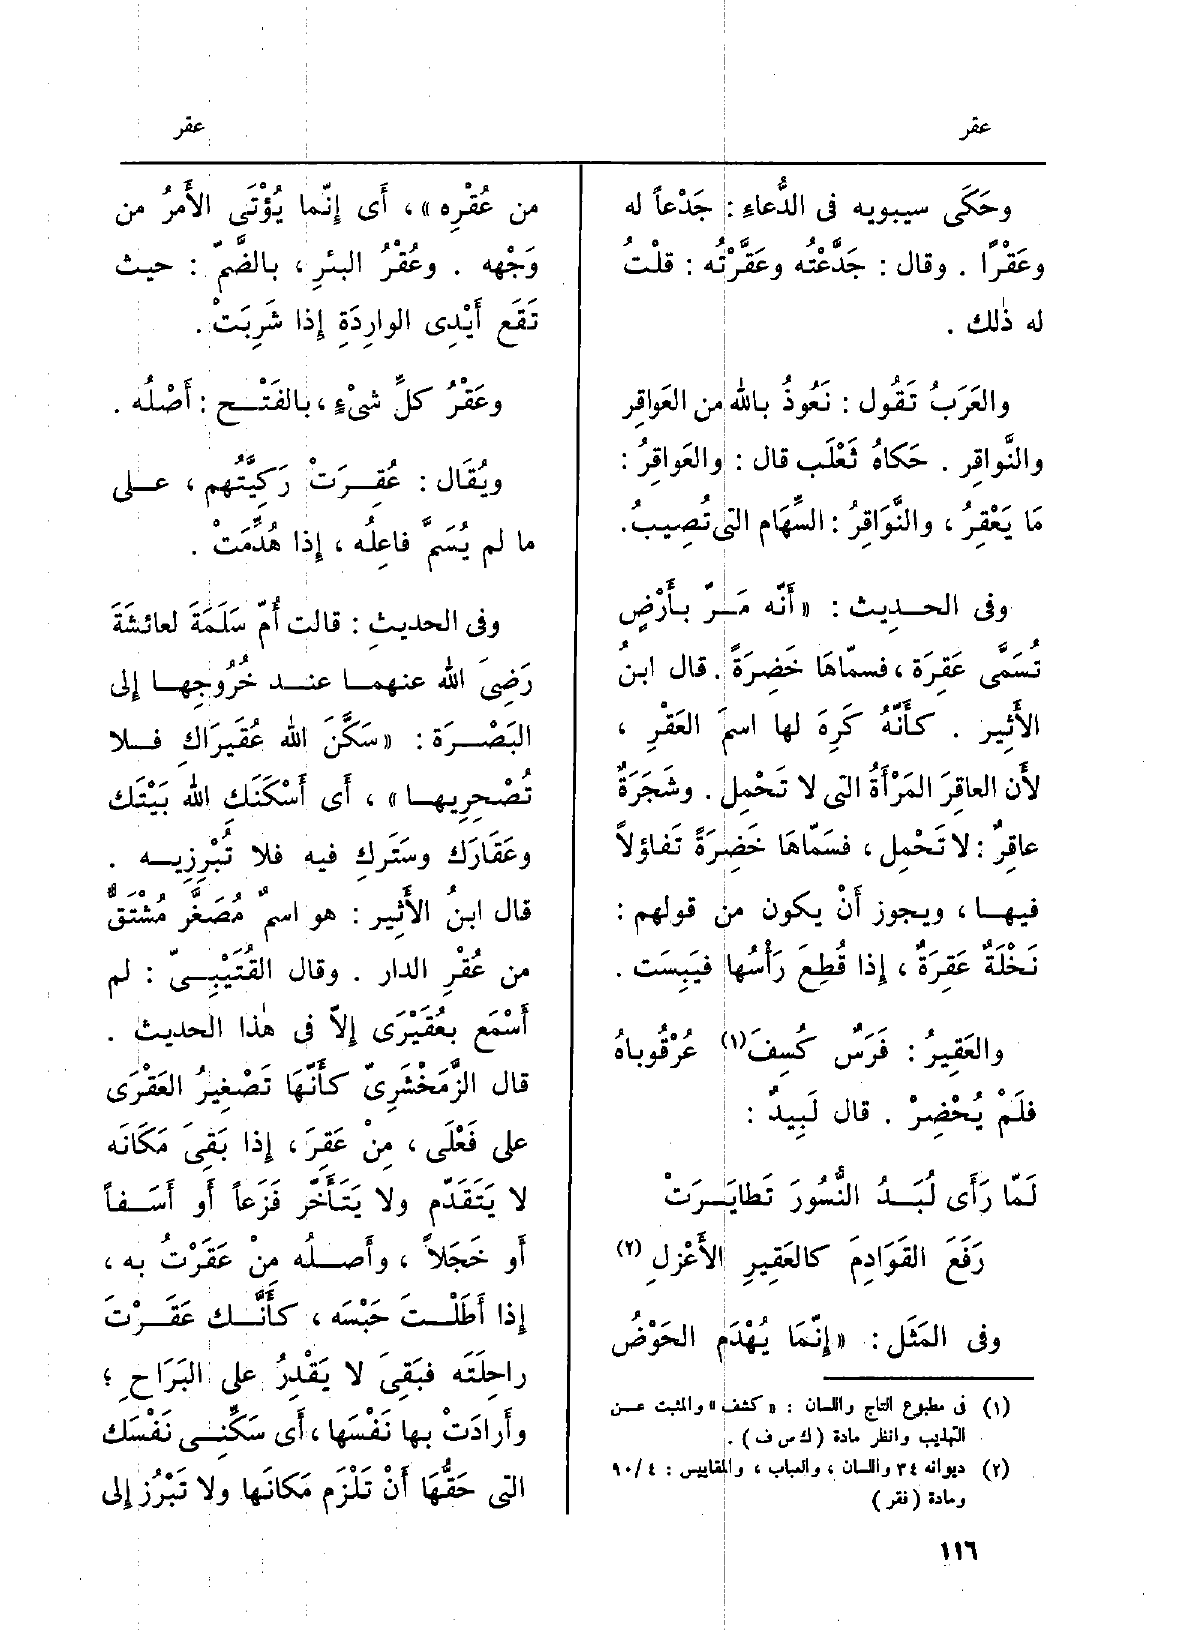 عقر
عقر
وحَكَى سيبويه فى الدُّعاءِ : جَدْعاً له
وعَقْرًا . وقال : جَدَّعْتُه وعَقَّرْتُه : قلْتُ
له ذٰلك .
والعَرَبُ تَقُول : نَعُوذُ بالله من العَواقِر
والنَّواقِر . حَكاهُ ثَعْلَب قال : والعَواقِرُ :
مَا يَعْقِرُ ، والنَّوَاقِرُ : السِّهَام التى تُصِيبُ.
وفى الحـديث : « أَنّه مَـرّ بـأَرْضٍ
تُسَمَّى عَقِرَة ، فسمّاهَا خَضِرَةً . قال ابنُ
الأَثِير . كأَنَّهُ كَرِهَ لها اسمَ العَقْرِ ،
لأَن العاقِرَ المَرْأَةُ التى لا تَحْمِل . وشَجَرَةٌ
عاقِرٌ : لا تَحْمِل ، فسَمّاهَا خَضِرَةً تَفاؤلاً
فيهـا ، ويجوز أَنْ يكون من قولهم :
نَخْلَةٌ عَقِرَةٌ ، إذا قُطِعَ رَأْسُها فيَبِسَت .
والعَقِيرُ : فَرَسٌ كُسِفَ(١) عُرْقُوباهُ
فلَمْ يُحْضِرْ . قال لَبِيدٌ :
لَمّا رَأَى لُبَـدُ النُّسُورَ تَطايَـرَتْ
رَفَعَ القَوَادِمَ كالعَقِيرِ الأَعْزلِ (٢)
وفى المَثَل : «إِنّمَا يُهْدَم الحَوْضُ
(١) فى مطبوع التاج واللسان : « كشف » والمثبت عـن
التهذيب وانظر مادة (ك س ف) .
(٢) ديوانه ٣٤ واللسان ، والعباب ، والمقاييس : ٤/ ٩٠
ومادة (فقر)
من عُقْرِه » ، أَى إنّما يُؤْتَى الأَمرُ من
وَجْهه . وعُقْرُ البئرِ ، بالضَّمّ : حيث
تَقَع أَيْدِى الوارِدَةِ إذا شَرِبَتْ .
وعَقْرُ كلِّ شىْءٍ ، بالفَتْـح : أَصْلُه .
ويُقَال : عُقِـرَتْ رَكِيَّتُهم ، عـلى
ما لم يُسَمَّ فاعِلُه ، إذا هُدِّمَتْ .
وفى الحديثِ : قالت أُمّ سَلَمَةَ لعائشَةَ
رَضِىَ الله عنهمـا عنـد خُرُوجِهـا إلى
البَصْـرَة : «سَكَّنَ الله عُقَيرَاكِ فـلا
تُصْحِرِيهـا» ، أَى أَسْكَنَكِ الله بَيْتَك
وعَقَارَك وسَتَركِ فيه فلا تُبْرِزِيـه .
قال ابنُ الأَثِير : هو اسمٌ مُصَغَّر مُشْتَقٌّ
من عُقْرِ الدار . وقال القُتَيْبِـىّ : لم
أَسْمَع بعُقَيْرَى إلاّ فى هٰذا الحديث .
قال الزَّمَخْشَرِىّ كأَنّهَا تَصْغِيرُ العَقْرَى
على فَعْلَى ، مِنْ عَقِرَ ، إذا بَقِىَ مَكَانَه
لا يَتَقَدّم ولا يَتَأَخّر فَزَعاً أو أَسَـفاً
أو خَجَلاً ، وأَصـلُه مِنْ عَقَرْتُ به ،
إذا أَطَلْـتَ حَبْسَه ، كأَنَّـك عَقَـرْتَ
راحِلَتَه فبَقِىَ لا يَقْدِرُ على البَرَاحِ ؛
وأَرادَتْ بها نَفْسَها ، أَى سَكِّنِـى نَفْسَك
التى حَقُّهَا أَنْ تَلْزَم مَكانَها ولا تَبْرُز إلى
١١٦